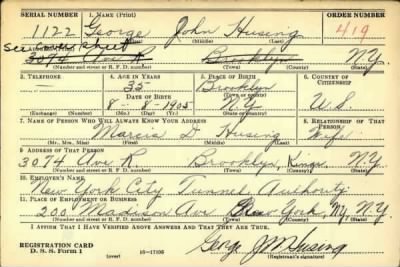 SERIAL NUMBER 1. NAME (Print) ORDER NUMBER
1122 George John Husing 419
(First) (Middle) (Last)
3074 Ave R. Brooklyn N.Y.
(Number and street or R. F. D. number) (Town) (County) (State)
3. TELEPHONE 4. AGE IN YEARS 5. PLACE OF BIRTH 6. COUNTRY OF CITIZENSHIP
— 35 Brooklyn
DATE OF BIRTH (Town or county)
8-8-1905 N.Y. U.S.
(Exchange) (Number) (Mo.) (Day) (Yr.) (State or country)
7. NAME OF PERSON WHO WILL ALWAYS KNOW YOUR ADDRESS 8. RELATIONSHIP OF THAT PERSON
D. Husing Wife
(Mr., Mrs., Miss) (First) (Middle) (Last)
9. ADDRESS OF THAT PERSON
3074 Ave R. Brooklyn, Kings, N.Y.
(Number and street or R. F. D. number) (Town) (County) (State)
10. EMPLOYER'S NAME
New York City Tunnel Authority
11. PLACE OF EMPLOYMENT OR BUSINESS
200 Madison Ave New York, NY, N.Y.
(Number and street or R. F. D. number) (Town) (County) (State)
I AFFIRM THAT I HAVE VERIFIED ABOVE ANSWERS AND THAT THEY ARE TRUE.
REGISTRATION CARD
D. S. S. Form 1 (over) 16-17105 George J Husing
(Registrant's signature)